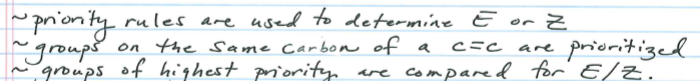 ~ priority rules are used to determine E or Z
~ groups on the same carbon of a C=C are prioritized
~ groups of highest priority are compared for E/Z.